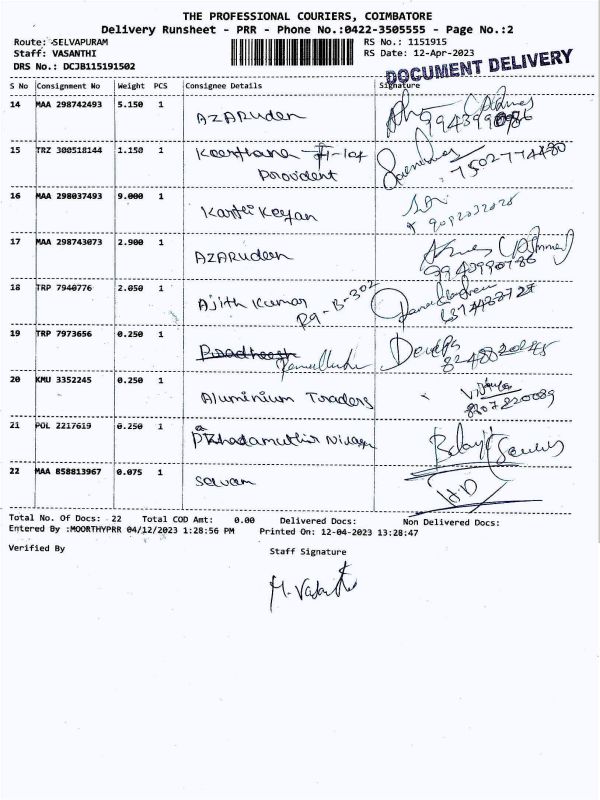 THE PROFESSIONAL COURIERS, COIMBATORE
Delivery Runsheet - PRR - Phone No.:0422-3505555 - Page No.:2
Route: SELVAPURAM RS No.: 1151915
Staff: VASANTHI RS Date: 12-Apr-2023
DRS No.: DCJB115191502 DOCUMENT DELIVERY
S No Consignment No Weight PCS Consignee Details Signature
14 MAA 298742493 5.150 1 AZARuden
15 TRZ 300518144 1.150 1 Keerthana
Provident 7502774480
16 MAA 298037493 9.000 1 Karthi Keyan
17 MAA 298743073 2.900 1 AZARuden
9940990786
18 TRP 7940776 2.050 1 Ajith Kumar
R9-B-302
19 TRP 7973656 0.250 1
20 KMU 3352245 0.250 1 Aluminium Traders
8807220089
21 POL 2217619 0.250 1
22 MAA 858813967 0.075 1 H.D
Total No. Of Docs: 22 Total COD Amt: 0.00 Delivered Docs: Non Delivered Docs:
Entered By :MOORTHYPRR 04/12/2023 1:28:56 PM Printed On: 12-04-2023 13:28:47
Verified By Staff Signature
M. Vasanthi